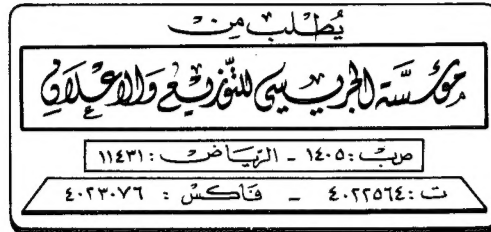 يُطلب مِن
مؤسَّسَة الجريسي للتّوزيع وَالإعْلان
صرب : ١٤٠٥ - الرّيَاض : ١١٤٣١
ت : ٤٠٢٢٥٦٤ - فَاكسْ : ٤٠٢٣٠٧٦